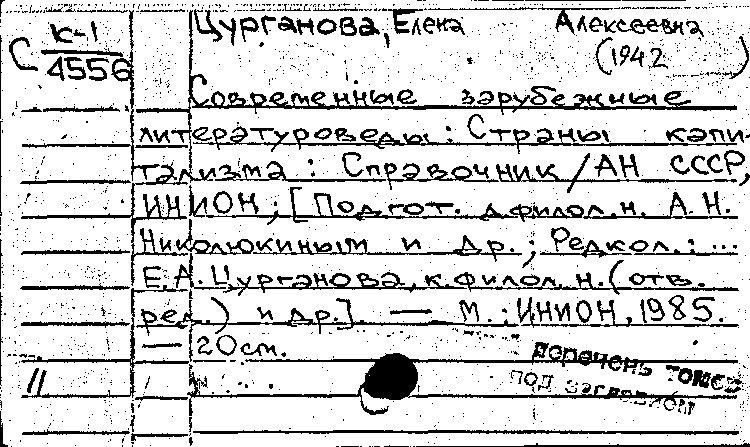 Цурганова, Елена Алексеевна
С К-1
4556
(1942 )
Современные зарубежные
литературоведы: Страны капи-
тализма: Справочник / АН СССР,
ИНИОН; [Подгот. д.филол.н. А.Н.
Николюкиным и др.; Редкол.: ...
Е.А. Цурганова, к.филол.н. (отв.
ред.) и др.]. — М.: ИНИОН, 1985.
— 20см.
перечень томов
под заглавием
11